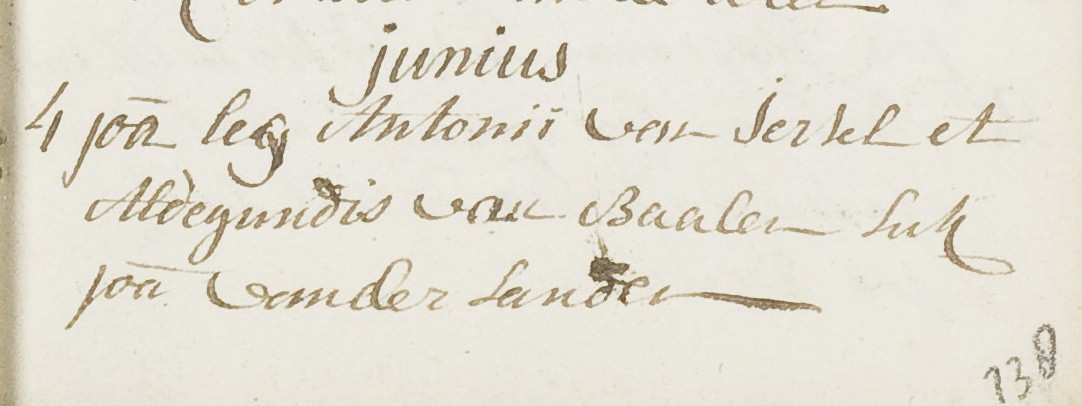 junius
4 joā leg Antonii van Iersel et
Aldegundis van Baalen sus
joā vander Sanden
138